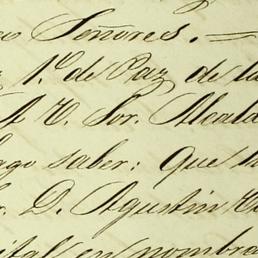 Señores.=
1.º de Paz de la
A V. Sor. Alcald
hago saber: que h
r. D. Agustin
en nombre